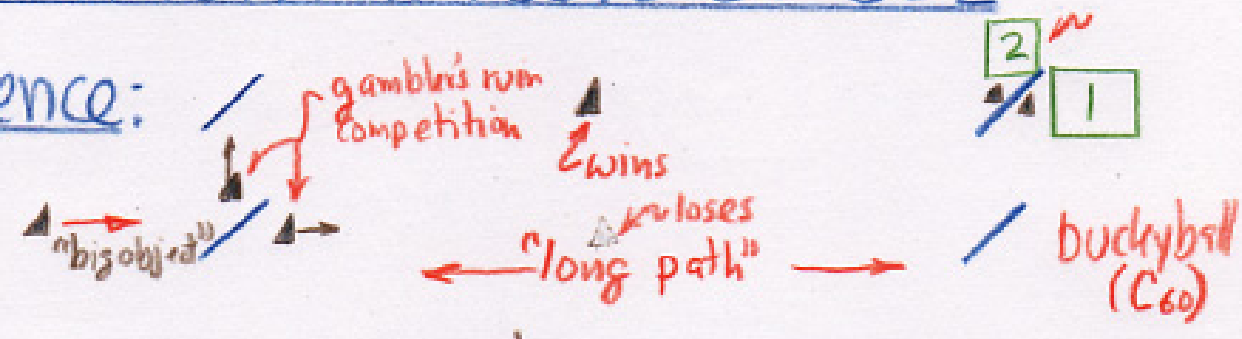 ence:
gambler's ruin
competition
wins
2
1
"big object"
loses
"long path"
buckyball
(C60)